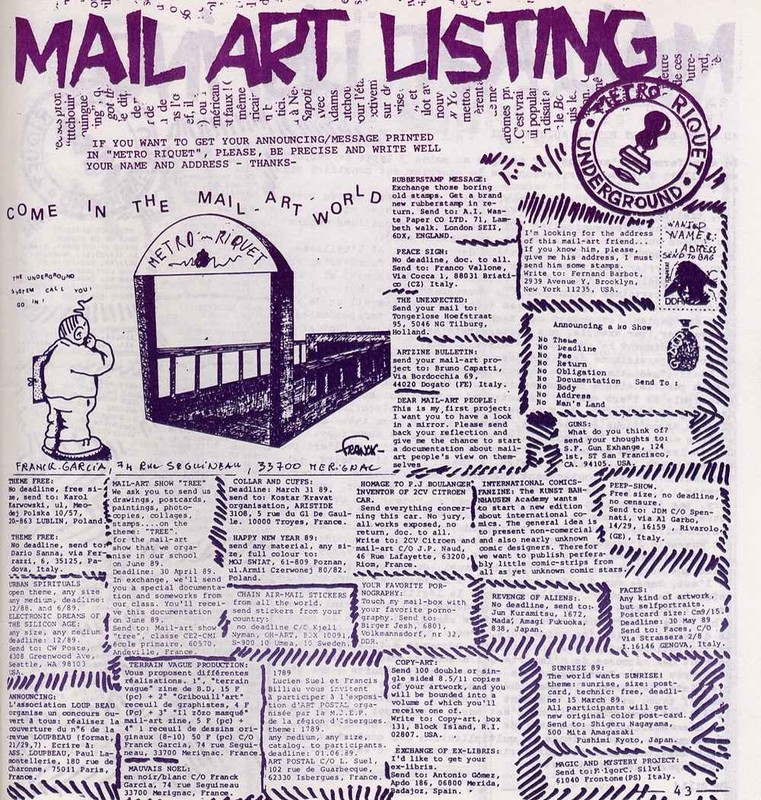 MAIL ART LISTING
IF YOU WANT TO GET YOUR ANNOUNCING/MESSAGE PRINTED
IN "METRO RIQUET", PLEASE, BE PRECISE AND WRITE WELL
YOUR NAME AND ADDRESS - THANKS-
METRO-RIQUET
UNDERGROUND
COME IN THE MAIL-ART WORLD
METRO-RIQUET
THE UNDERGROUND
SYSTEM CALL YOU!
GO IN!
FRANCK-
FRANCK.GARCIA, 74 RUE SEGUINEAU, 33700 MERIGNAC
RUBBERSTAMP MESSAGE:
Exchange those boring
old stamps. Get a brand
new rubberstamp in re-
turn. Send to: A.I. Was-
te Paper CO LTD. 71, Lam-
beth walk. London SEII,
6DX, ENGLAND.
PEACE SIGN:
No deadline, doc. to all.
Send to: Franco Vallone,
Via Cocca 1, 88031 Briati-
co (CZ) Italy.
THE UNEXPECTED:
Send your mail to:
Tongerlose Hoefstraat
95, 5046 NG Tilburg,
Holland.
ARTZINE BULLETIN:
send your mail-art pro-
ject to: Bruno Capatti,
Via Bordocchia 69,
44020 Dogato (FE) Italy.
DEAR MAIL-ART PEOPLE:
This is my first project:
I want you to have a look
in a mirror. Please send
back your reflection and
give me the chance to start
a documentation about mail-
art people's view on them-
selves
I'm looking for the address
of this mail-art friend...
If you know him, please,
give me his address, I must
send him some stamps.
Write to: Fernand Barbot,
2939 Avenue Y, Brooklyn,
New York 11235, USA.
WANTED
NAME &
ADRESS
SEND TO BAG
DDR
Announcing a No Show
No Theme
No Deadline
No Fee
No Return
No Obligation
No Documentation Send To :
No Body
No Address
No Man's Land
GUNS:
What do you think of?
send your thoughts to:
S.F. Gun Exhange, 124
1st, SF San Francisco,
CA. 94105, USA.
THEME FREE:
No deadline, free si-
ze, send to: Karol
dej Polska 10/57,
20-863 LUBLIN, Poland
THEME FREE:
No deadline, send to:
Dario Sanna, via Fer-
razzi, 6, 35125, Pa-
dova, Italy
URBAN SPIRITUALS
open theme, any size
any medium, deadline:
12/88. and 6/89.
ELECTRONIC DREAMS OF
THE SILICON AGE:
any size, any medium
deadline: 12/89.
Send to: CW Poste,
4308 Greenwood Ave,
Seattle, WA 98103
USA.
ANNOUNCING:
L'association LOUP BEAU
organise un concours ou-
vert à tous: réaliser la
couverture du n°6 de la
revue LOUPBEAU (format:
21/29,7). Ecrire à:
ASS. LOUPBEAU, Paul La-
montellerie, 180 rue de
Charonne, 75011 Paris,
France.
MAIL-ART SHOW "TREE"
We ask you to send us
drawings, postcards,
paintings, photo-
copies, collages,
stamps....on the
theme: "TREE".
for the mail-art
show that we orga-
nise in our school
on June 89.
Dealine: 30 April 89.
In exchange, we'll send
you a special documenta-
tion and someworks from
our class. You'll recei-
ve this documentation
on June 89.
Send to: Mail-art show
"tree", classe CE2-CM1
école primaire, 60570,
Andeville, France
COLLAR AND CUFFS:
Deadline: March 31 89.
send to: Kostar Kravat
organisation, ARISTIDE
3108, 5 rue du Gl De Gaul-
le. 10000 Troyes, France.
HAPPY NEW YEAR 89:
send any material, any si-
ze, full colour to:
MOJ SWIAT, 61-809 Poznan,
ul.Armii Czerwonej 80/82.
Poland.
CHAIN AIR-MAIL STICKERS
from all the world.
send stickers from your
country:
no deadline C/C Kjell
Nyman, OH-ART, BOX 10091,
S-900 10 Umea 10, Sweden
HOMAGE TO P.J BOULANGER
INVENTOR OF 2CV CITROEN
CAR.
Send everything concer-
ning this car. No jury,
all works exposed, no
return, doc. to all.
Write to: 2CV Citroen and
mail-art C/O J.P. Naud,
46 Rue Lafayette, 63200,
Riom, France.
YOUR FAVORITE POR-
NOGRAPHY:
Touch my mail-box with
your favorite porno-
graphy. Send to:
Birger Jesh, 6801,
Volkmannsdorf, nr 32,
DDR.
INTERNATIONAL COMICS-
FANZINE: THE KUNST BAH-
NHAUSEN Academy wants
to start a new edition
about international co-
mics. The general idea is
to present non-commercial
and also nearly unknown
comic designers. Therefor
we want to publish perfera-
bly little comic-strips from
all as yet unknown comic stars.
PEEP-SHOW.
Free size, no deadline,
no censure.
Send to: JDM C/O Spen-
nati, via Al Garbo,
14/29, 16159, Rivarolo,
(GE), Italy.
REVENGE OF ALIENS:
No deadline, send to:
Jun Kuramitsu, 1672,
Mada, Amagi Fukuoka,
838, Japan.
FACES:
Any kind of artwork,
but selfportraits.
Postcard size: Cm9/15.
Deadline: 30 May 89
Send to: Faces, C/O
Via Strassera 2/8
I.16146 GENOVA, Italy.
TERRAIN VAGUE PRODUCTION:
Vous proposent différentes
réalisations. 1°, "terrain
vague" zine de B.D, 15 F
(pc) + 2° "Gribouil'art"
receuil de graphistes, 4 F
(Pc) + 3° "Il zôzo masqué"
mail-art zine, 5 F (pc) +
4° 1 receuil de dessins ori-
ginaux (8-10) 50 F (pc) C/O
Franck Garcia, 74 rue Segui-
neau, 33700 Merignac, France.
MAUVAIS NOEL:
en noir/blanc C/O Franck
Garcia, 74 rue Seguineau
33700 Merignac, France.
1789
Lucien Suel et Francis
Billiau vous invitent
à participer à l'exposi-
tion d'ART POSTAL orga-
nisée par la M.J.E.P
de la région d'Isbergues
theme: 1789.
any medium, any size,
catalog. to participants
deadline: 01.06.89.
ART POSTAL C/O L. Suel,
102 rue de Guarbecque,
62330 Isbergues, France.
COPY-ART:
Send 100 double or sin-
gle sided 8.5/11 copies
of your artwork, and you
will be bounded into a
volume of which you'll
receive one of.
Write to: Copy-art, box
131, Block Island, R.I.
02807. USA.
EXCHANGE OF EX-LIBRIS:
I'd like to get your
ex-libris.
Send to: Antonio Gómez,
Apdo 186, 06800 Merida,
Badajoz, Spain.
SUNRISE 89:
The world wants SUNRISE!
theme: sunrise, size: post-
card, technic: free, deadli-
ne: 15 March 89.
All participants will get
new original color post-card.
Send to: Shigeru Nagayama,
500 Mita Amagasaki
Fushimi Kyoto, Japan.
MAGIC AND MYSTERY PROJECT:
Silvi
61040 Frontone(PS) Italy.
43